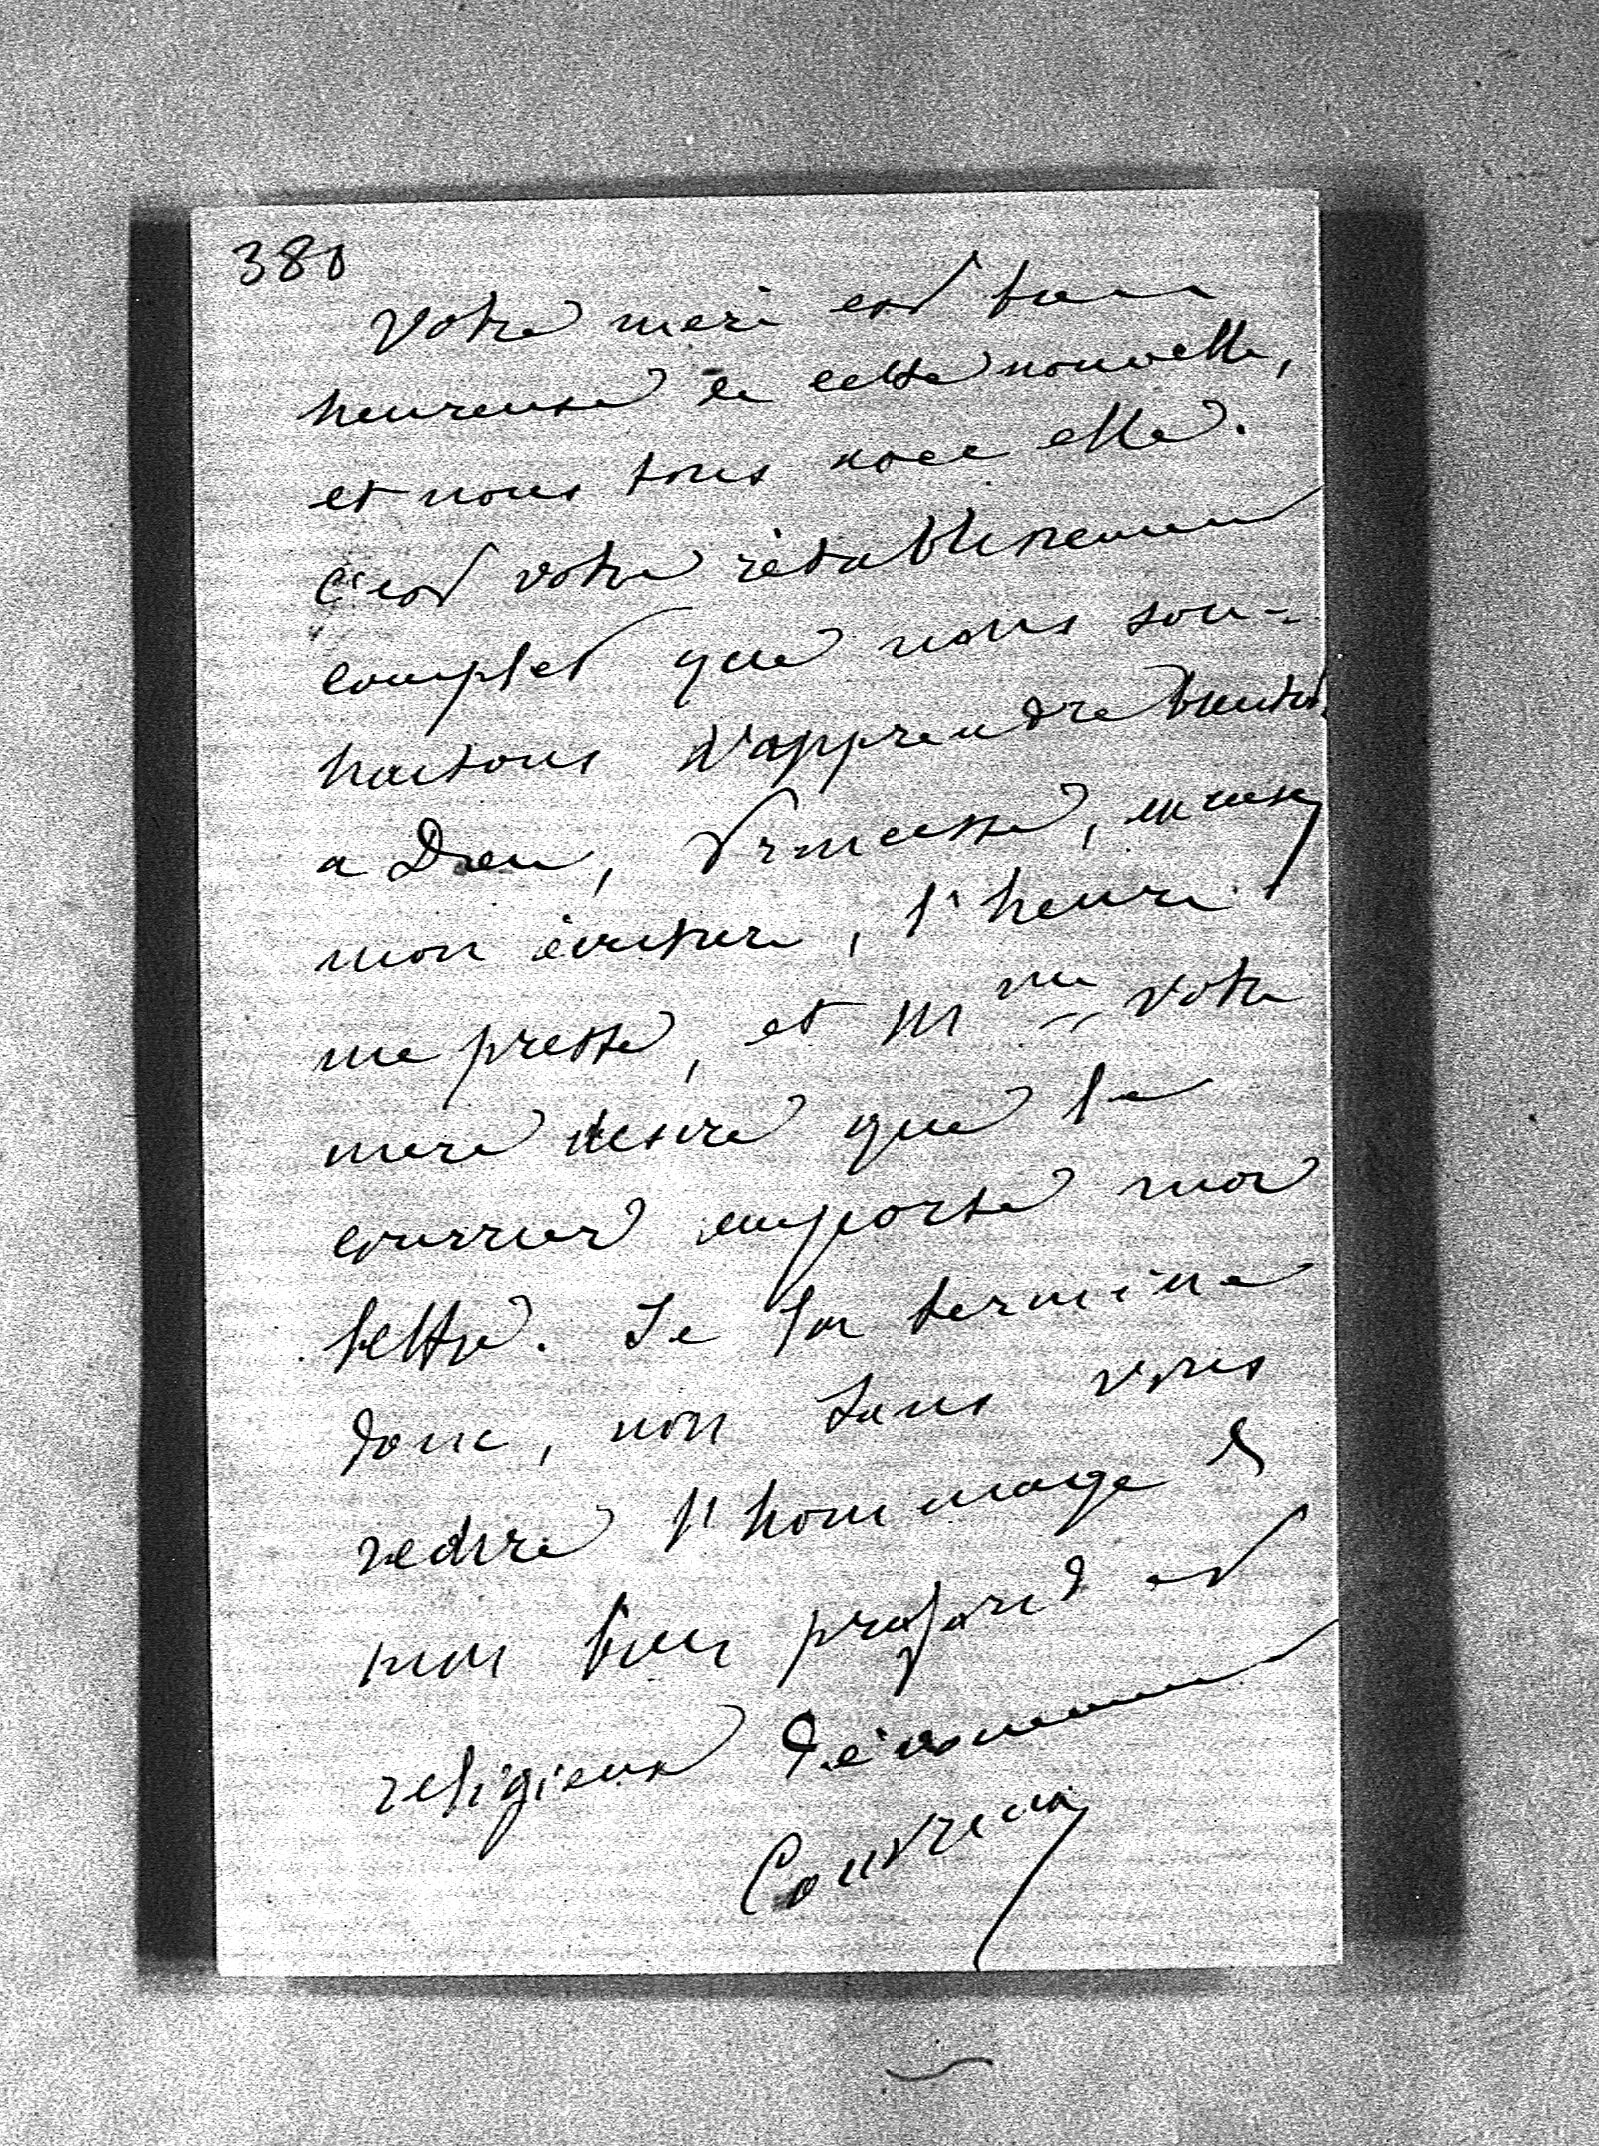 380
Votre mère est bien
heureuse de cette nouvelle,
et nous tous avec elle.
C'est votre rétablissement
complet que nous sou-
haitons d'apprendre bientôt.
a Dieu, Princesse, excusez
mon écriture, l'heure
me presse, et Mme votre
mere desire que le
courrier emporte mon
lettre. Je la termine
donc, non sans vous
redire l'hommage de
mon bien profond et
religieux dévouement